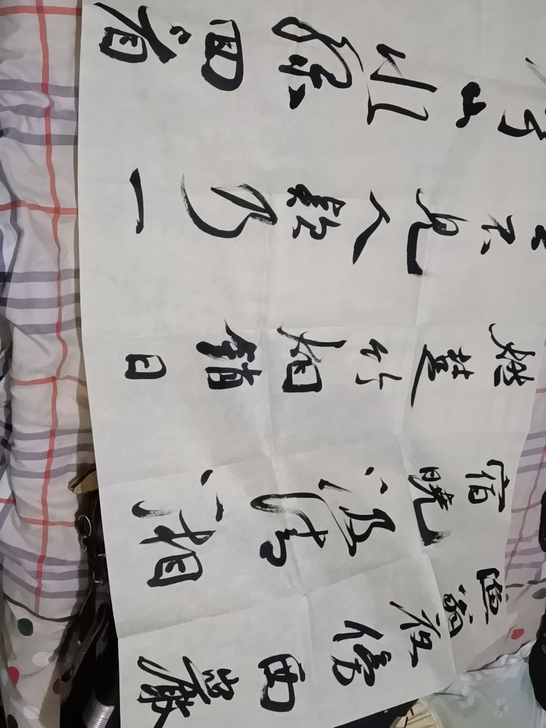 漁翁夜傍西巖
宿曉汲清湘
燃楚竹烟銷日
不見人欸乃一
山水綠回看